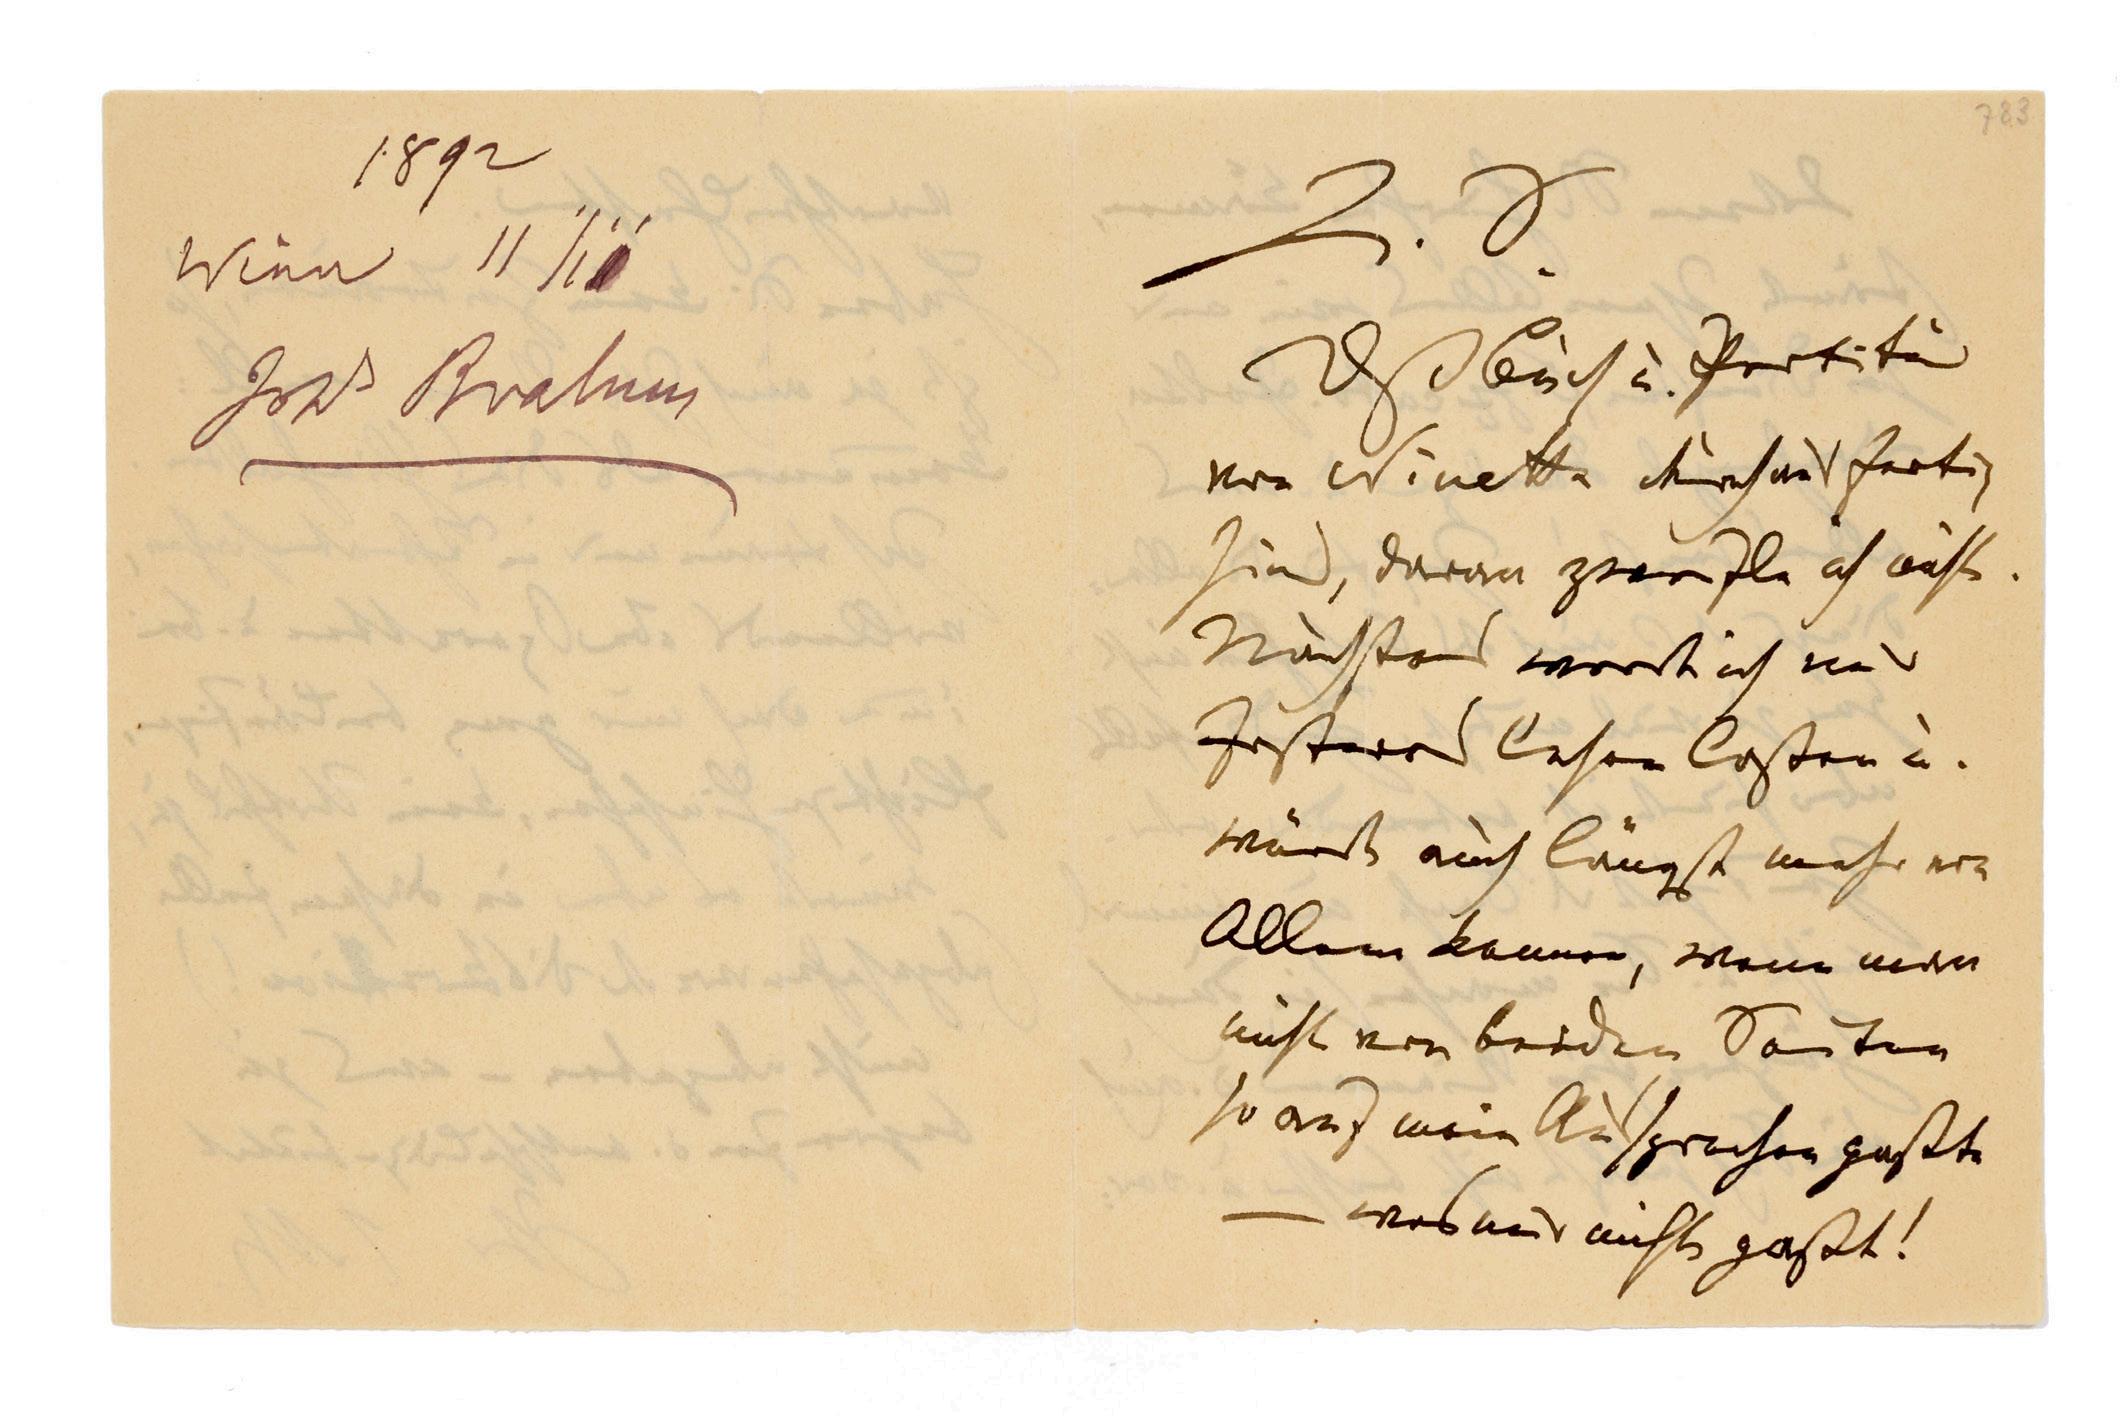 1892
Wien 11/ii
Johs Brahms
783
L. S.
Daß Buch u. Partitur
von Ninetta durchaus fertig
sind, daran zweifle ich nicht.
Nächstens werde ich mir
Ersteres leihen laßen u.
würde auch längst mehr von
Allem kennen, wenn man
nicht von beiden Seiten
so auf mein Aussprechen paßte
— was mir nicht paßt!